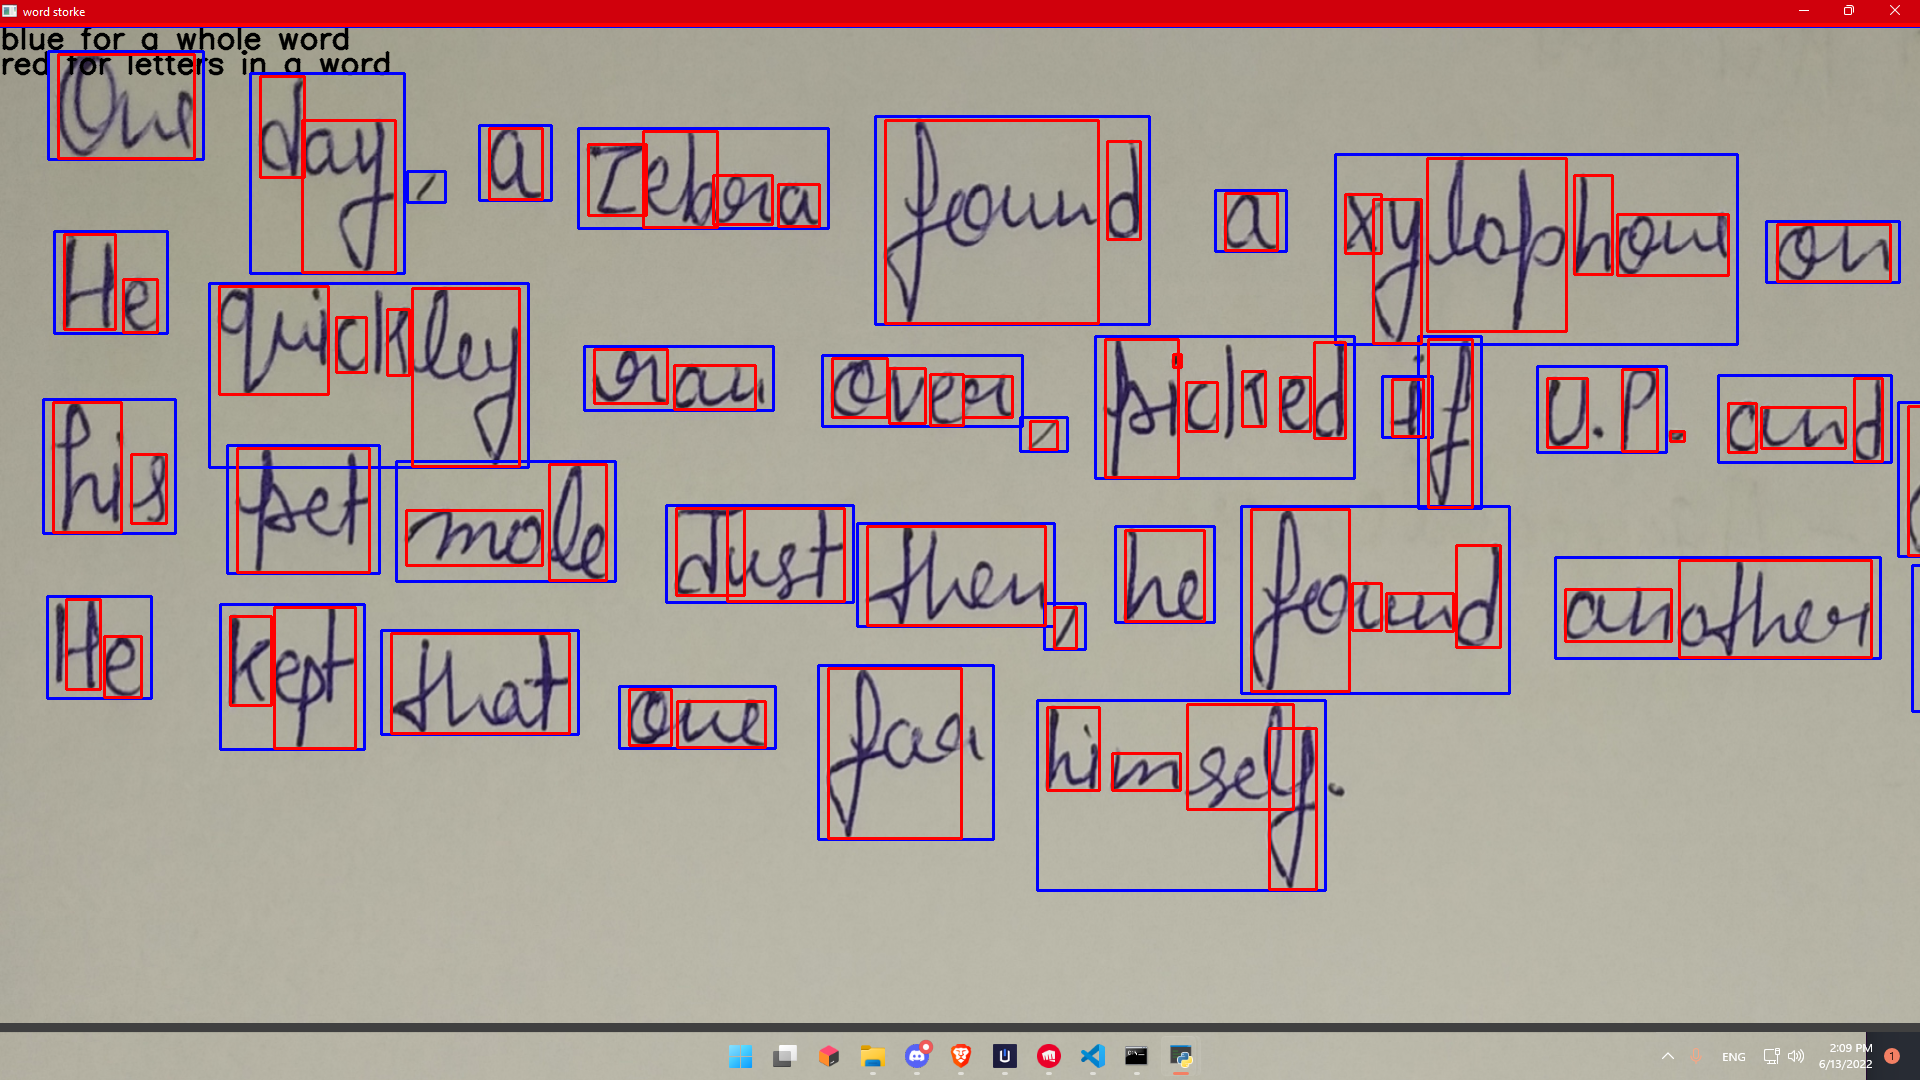 word storke
blue for a whole word
red for letters in a word
One day, a Zebra found a xylophone on
He quickley ran over, picked it U.P. and
his pet mole Just then, he found another
He kept that one for himself.
ENG
2:09 PM
6/13/2022
1